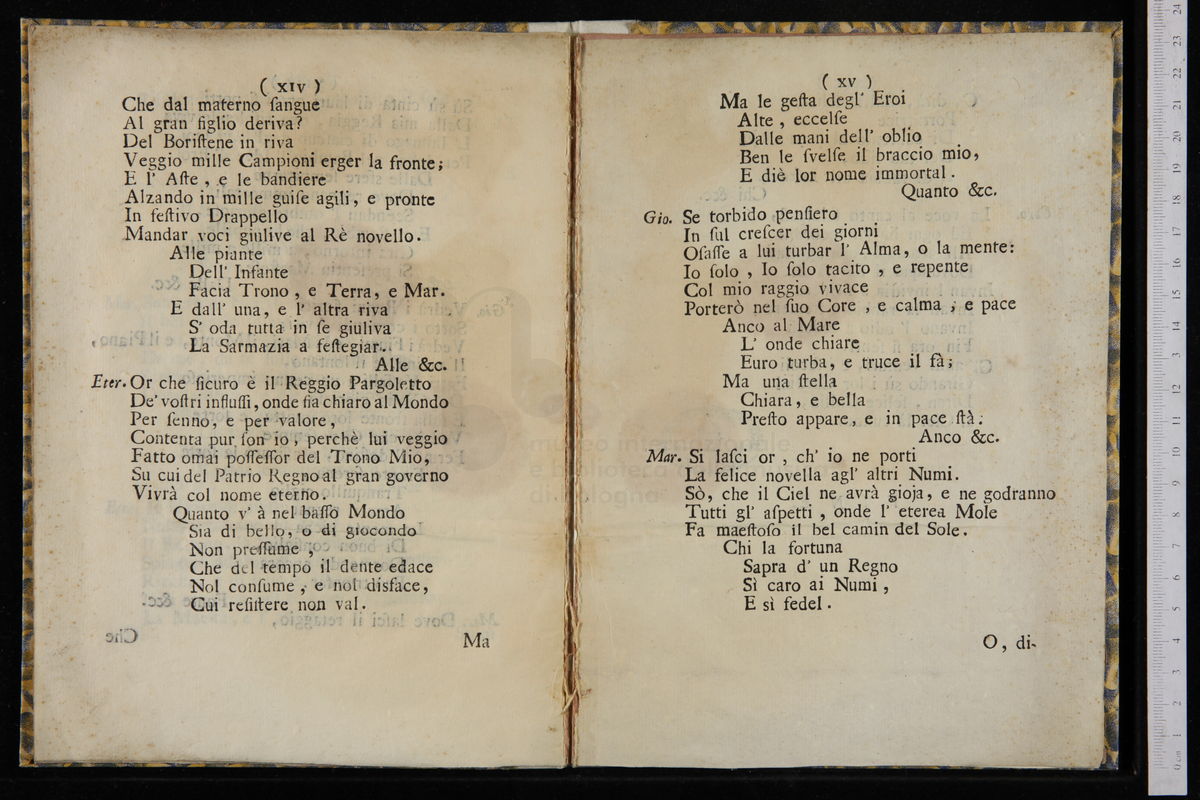 ( XIV )
Che dal materno ſangue
Al gran figlio deriva?
Del Boriſtene in riva
Veggio mille Campioni erger la fronte;
E l' Aſte , e le bandiere
Alzando in mille guiſe agili, e pronte
In feſtivo Drappello
Mandar voci giulive al Rè novello.
Alle piante
Dell' Infante
Facia Trono , e Terra, e Mar.
E dall' una, e l' altra riva
S' oda tutta in ſe giuliva
La Sarmazia a feſtegiar.
Alle &c.
Eter. Or che ſicuro è il Reggio Pargoletto
De' voſtri influſſi, onde fia chiaro al Mondo
Per ſenno, e per valore,
Contenta pur ſon io, perchè lui veggio
Fatto omai poſſeſſor del Trono Mio,
Su cui del Patrio Regno al gran governo
Vivrà col nome eterno.
Quanto v' à nel baſſo Mondo
Sia di bello, o di giocondo
Non preſſume ,
Che del tempo il dente edace
Nol conſume , e nol disface,
Cui reſiſtere non val.
Ma
( XV )
Ma le geſta degl' Eroi
Alte , eccelſe
Dalle mani dell' oblio
Ben le ſvelſe il braccio mio,
E diè lor nome immortal.
Quanto &c.
Gio. Se torbido penſiero
In ſul creſcer dei giorni
Oſaſſe a lui turbar l' Alma, o la mente:
Io ſolo , Io ſolo tacito , e repente
Col mio raggio vivace
Porterò nel ſuo Core , e calma , e pace
Anco al Mare
L' onde chiare
Euro turba, e truce il fà;
Ma una ſtella
Chiara, e bella
Preſto appare, e in pace ſtà.
Anco &c.
Mar. Si laſci or , ch' io ne porti
La felice novella agl' altri Numi.
Sò, che il Ciel ne avrà gioja, e ne godranno
Tutti gl' aſpetti , onde l' eterea Mole
Fa maeſtoſo il bel camin del Sole.
Chi la fortuna
Sapra d' un Regno
Sì caro ai Numi ,
E sì fedel.
O, di-